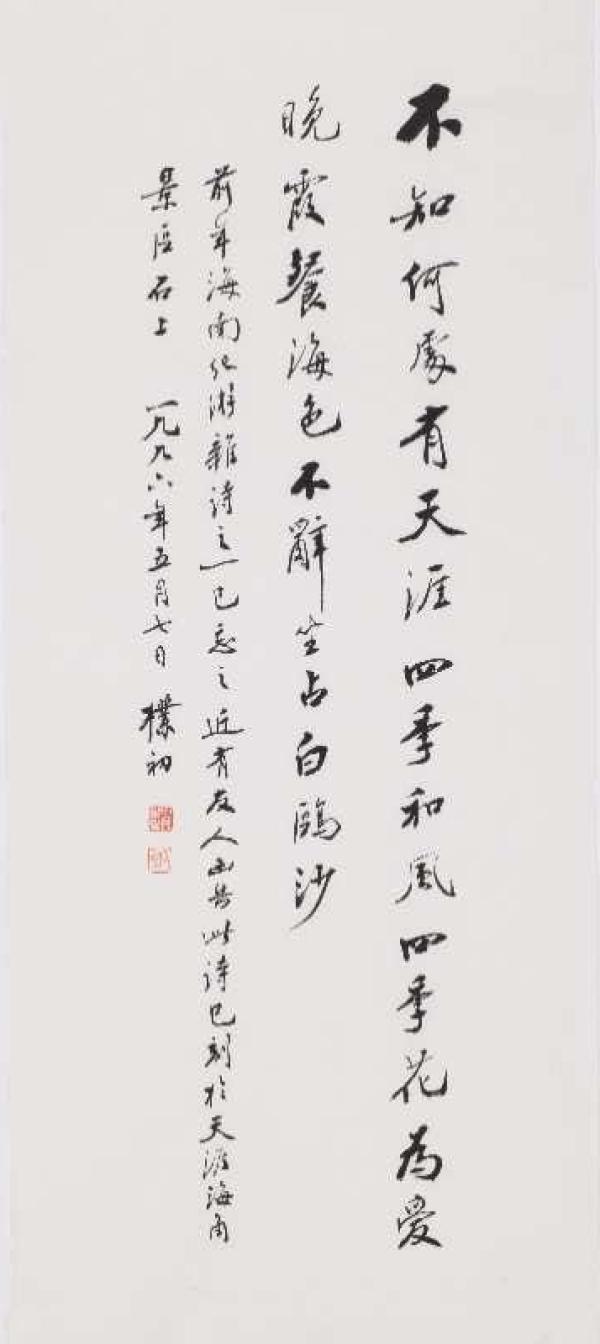 不知何處有天涯四季和風四季花為愛
晚霞餐海色不辭坐占白鷗沙
前年海南紀游雜詩之一已忘之近有友人函告此詩已刻於天涯海角
景区石上 一九九六年五月七日 樸初